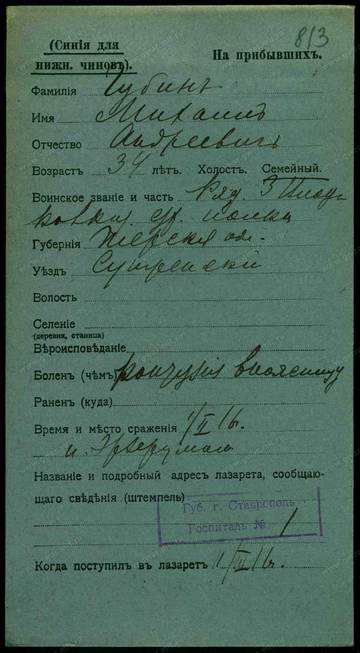 813
(Синія для нижн. чиновъ).
На прибывшихъ.
Фамилія Губинъ
Имя Михаилъ
Отчество Андреевичъ
Возрастъ 34 лѣтъ. Холост. Семейный.
Воинское званіе и часть Ряд. 3
полка
Губернія Терская обл.
Уѣздъ Сунженскій
Волость
Селеніе
(деревня, станица)
Вѣроисповѣданіе
Боленъ (чѣмъ) контузія въ поясницу
Раненъ (куда)
Время и мѣсто сраженія 1/II 16.
Эрзерумом
Названіе и подробный адресъ лазарета, сообщаю-
щаго свѣдѣнія (штемпель)
Губ. г. Ставрополь
Госпиталь № 1
Когда поступилъ въ лазаретъ 11/III 16.